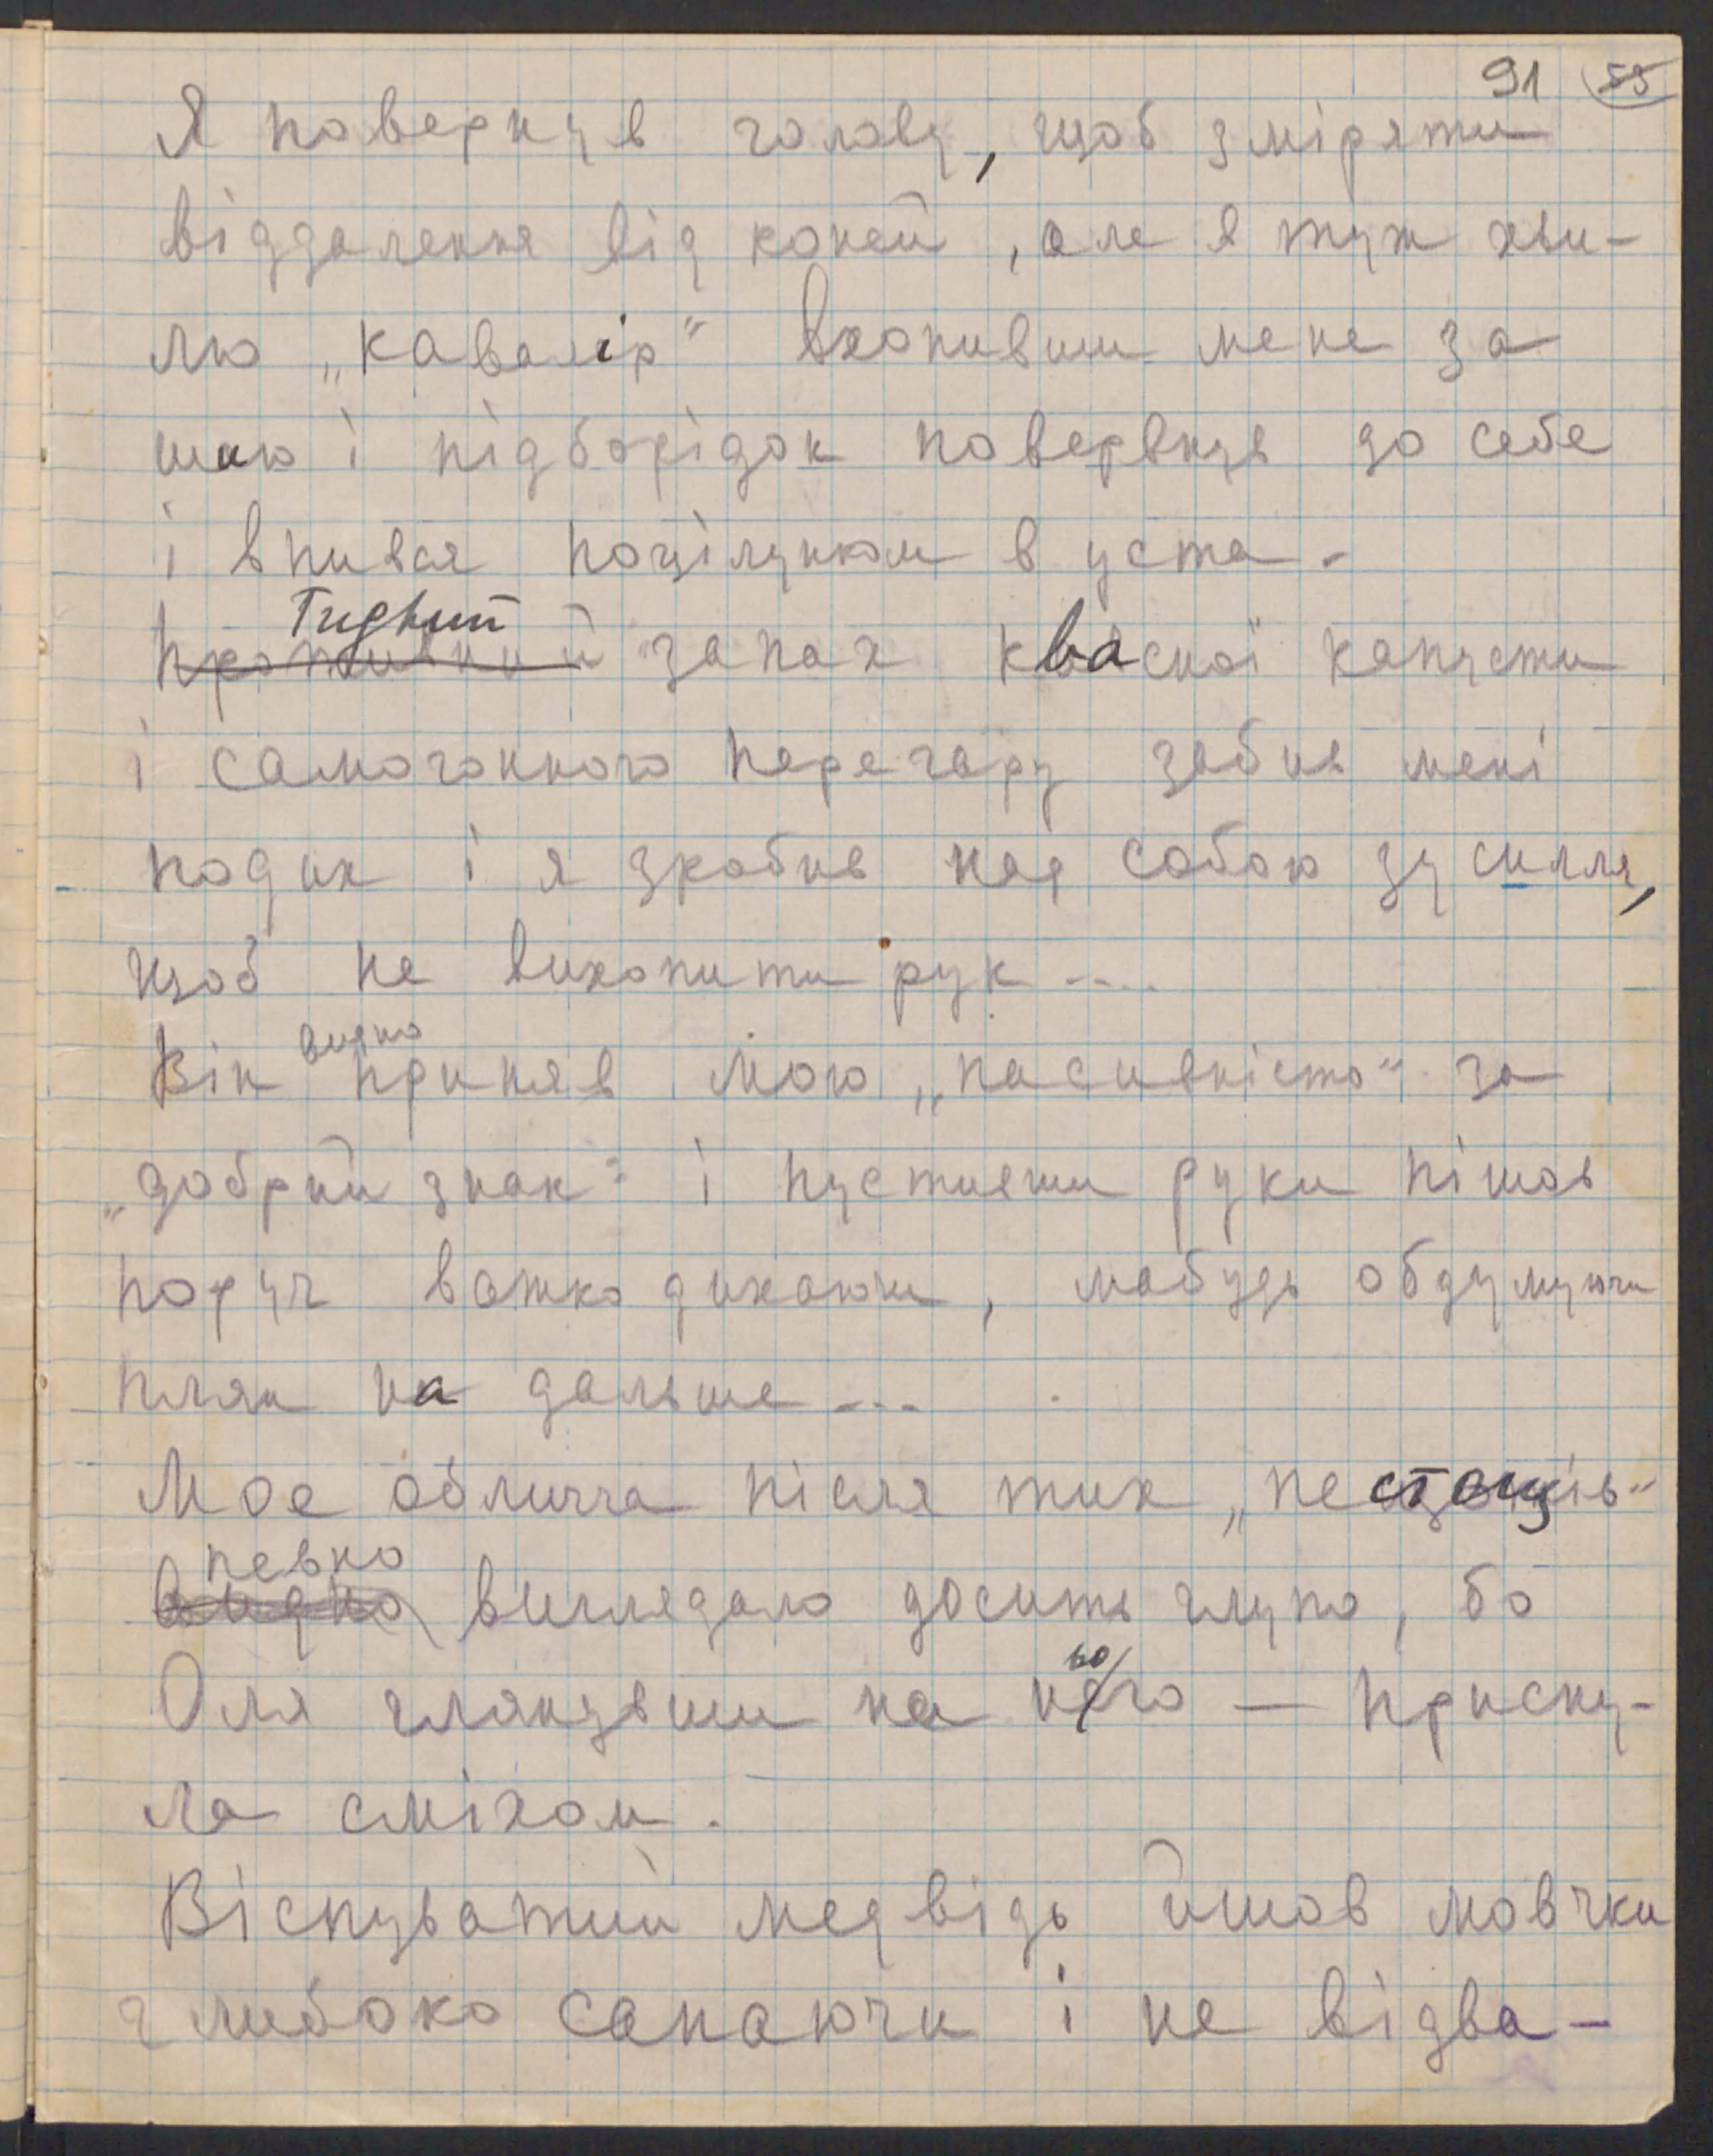 91 59
Я повернув голову, щоб зміряти
віддалення від коней, але в туж хви-
лю „кавалір" вхопивши мене за
шию і підборідок повервнув до себе
і впився поцілунком в уста.
Гидкий
противний запах квасної капусти
і самогонного перегару забив мені
подих і я зробив над собою зусилля,
щоб не вихопити рук ....
видно
Він приняв мою „пасивність" за
„добрий знак" і пустивши руки пішов
поруч важко дихаючи, мабудь обдумуючи
плян на дальше ...
Моє обличча після тих „пестощів"
певно
видно виглядало досить глупо, бо
ьо
Оля глянувши на него — приску-
ла сміхом.
Віспуватий медвідь йшов мовчки
глибоко сапаючи і не відва-